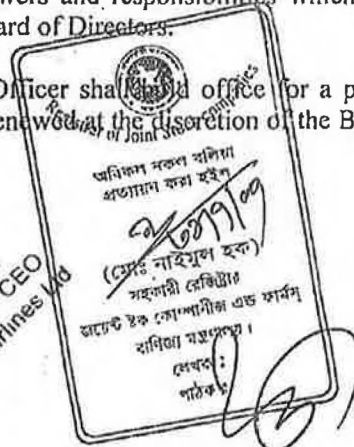 wers and responsibilities which
ard of Directors.
Officer shall hold office for a p
enewed at the discretion of the B
Registrar of Joint Stock Companies
অবিকল নকল বলিয়া
প্রত্যায়ন করা হইল
(মোঃ নাইমুল হক)
সহকারী রেজিষ্ট্রার
জয়েন্ট ষ্টক কোম্পানীজ এন্ড ফার্মস্
বাণিজ্য মন্ত্রণালয়।
লেখক :
পাঠক :
CEO
rlines Ltd